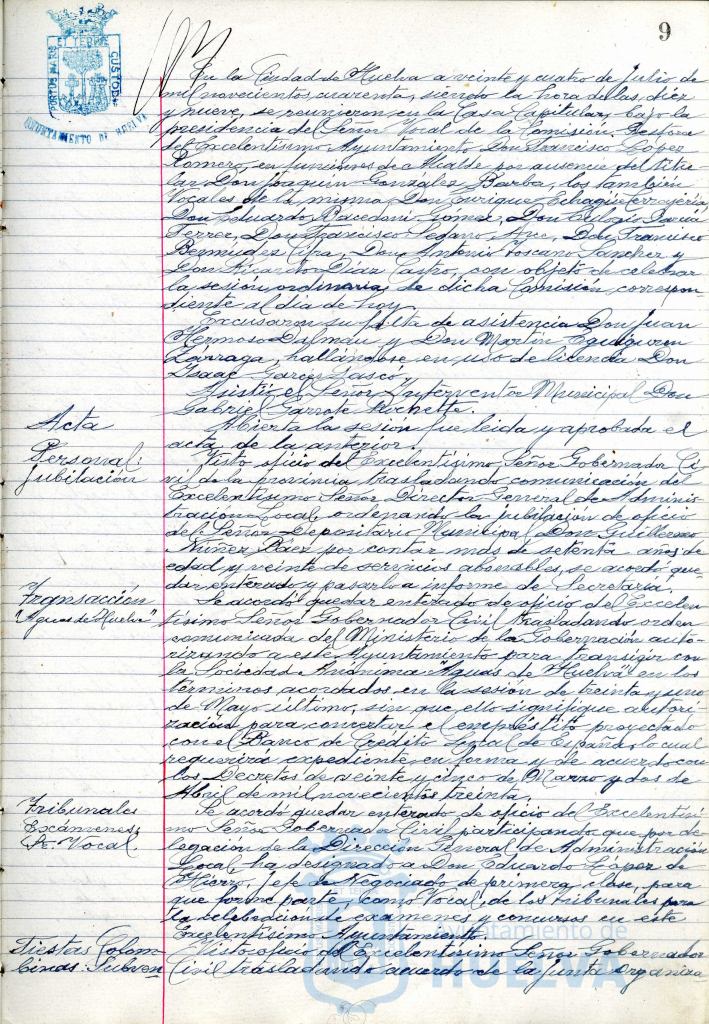 9
PORTUS MARIS ET TERRE CUSTODIA
AYUNTAMIENTO DE HUELVA
En la Ciudad de Huelva a veinte y cuatro de Julio de
mil novecientos cuarenta, siendo la hora de las diez
y nueve, se reunieron en la Casa Capitular, bajo la
presidencia del Señor Vocal de la Comisión Gestora
del Excelentísimo Ayuntamiento Don Francisco López
Romero, en funciones de Alcalde por ausencia del titu-
lar Don Joaquín González Barba, los también
Vocales de la misma Don Enrique
Don Eduardo Bacedoni Gómez, Don Eulogio García
Ferrer, Don Francisco Sedano Arce, Don Francisco
Bermúdez Cifra, Don Antonio Toscano Sánchez y
Don Ricardo Díaz Castro, con objeto de celebrar
la sesión ordinaria de dicha Comisión, correspon-
diente al día de hoy.
Excusaron su falta de asistencia Don Juan
Hermoso Dalmau y Don Martín Eguiguren
Zárraga, hallándose en uso de licencia Don
Isaac Garcés Gascó.
Asistió el Señor Interventor Municipal Don
Gabriel Garrote
Acta
Abierta la sesión fue leida y aprobada el
acta de la anterior.
Personal
jubilación
Visto oficio del Excelentísimo Señor Gobernador Ci-
vil de la provincia trasladando comunicación del
Excelentísimo Señor Director General de Adminis-
tración Local, ordenando la jubilación de oficio
del Señor Depositario Municipal Don Guillermo
Núñez Báez por contar más de setenta años de
edad y veinte de servicios abonables, se acordó que-
dar enterado y pasarlo a informe de Secretaría.
Transacción
"Aguas de Huelva"
Se acordó quedar enterado de oficio del Excelen-
tísimo Señor Gobernador Civil trasladando orden
comunicada del Ministerio de la Gobernación auto-
rizando a este Ayuntamiento para transigir con
la Sociedad Anónima "Aguas de Huelva" en los
términos acordados en la sesión de treinta y uno
de Mayo último, sin que ello signifique autori-
zación para concertar el empréstito proyectado
con el Banco de Crédito Local de España, lo cual
requerirá expediente en forma y de acuerdo con
los Decretos de veinte y cinco de Marzo y dos de
Abril de mil novecientos treinta.
Tribunales
Exámenes
Vocal
Se acordó quedar enterado de oficio del Excelentísi-
mo Señor Gobernador Civil participando que por de-
legación de la Dirección General de Administración
Local, ha designado a Don Eduardo López de
Hierro, Jefe de Negociado de primera clase, para
que forme parte, como Vocal, de los tribunales para
la celebración de exámenes y concursos en este
Excelentísimo Ayuntamiento.
Fiestas Colom-
binas. Subven
Visto oficio del Excelentísimo Señor Gobernador
Civil trasladando acuerdo de la Junta Organiza-
Ayuntamiento de
HUELVA